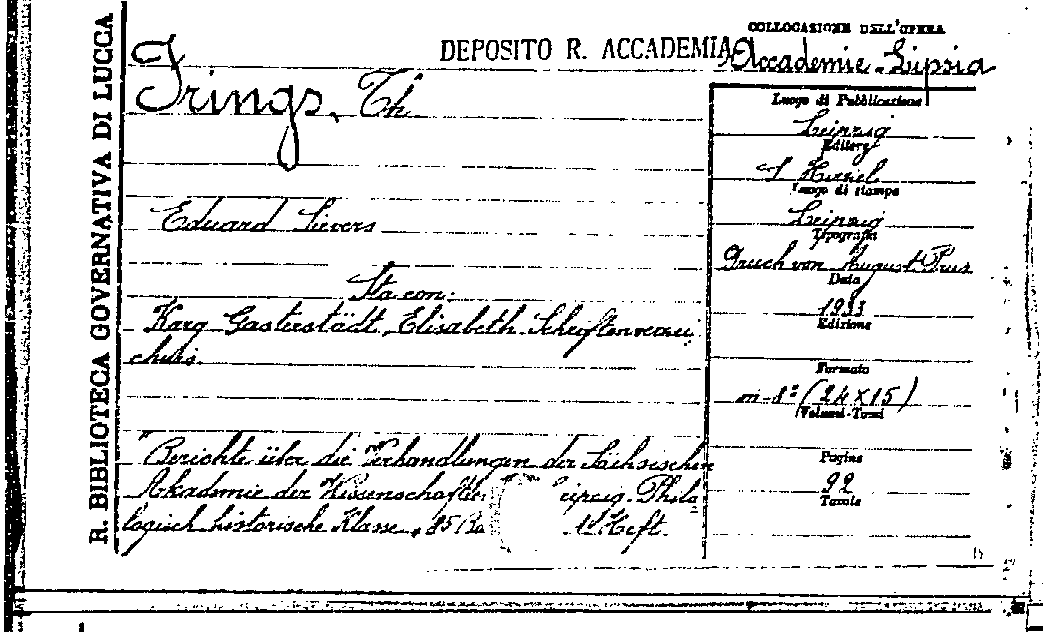 R. BIBLIOTECA GOVERNATIVA DI LUCCA
DEPOSITO R. ACCADEMIA
COLLOCAZIONE DELL'OPERA
Accademie-Lipsia
Frings, Th.
Eduard Sievers
Sta con:
Karg Gasterstädt, Elisabeth. Schriftenverzei
chnis.
"Berichte über die Verhandlungen der Sächsischen
Akademie der Wissenschaften eipzig. Philo
logisch historische Klasse, 85 Ba 1. Heft.
Luogo di Pubblicazione
Leipzig
Editore
S Hirzel
Luogo di stampa
Leipzig
Tipografia
Druck von August Pries
Data
1933
Edizione
Formato
in-8° (24×15)
Volumi-Tomi
Pagine
92
Tavole